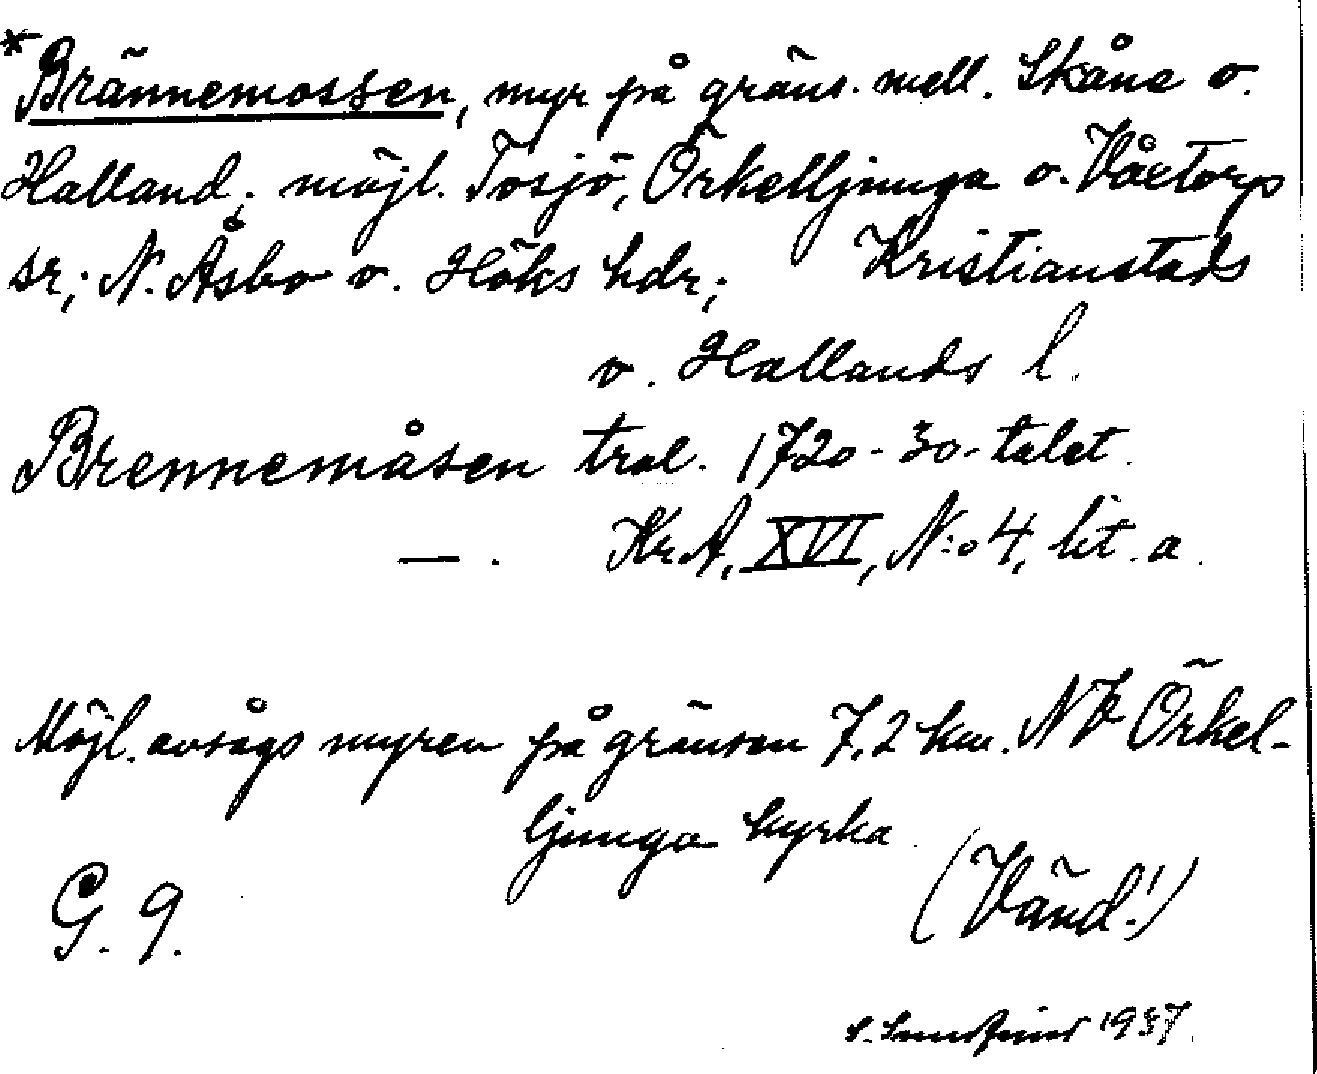 *Brännemossen, myr på gräns. mell. Skåne o.
Halland; möjl. Tosjö, Örkelljunga o. Våxtorps
sr; N. Åsbo o. Höks hdr; Kristianstads
o. Hallands l.
Brennemåsen trol. 1720-30-talet.
— . KrA, XVI, N:o 4, lit. a.
Möjl. avsågs myren på gränsen 7,2 km. NV Örkel-
ljunga kyrka.
(Vänd!)
G. 9.
1937